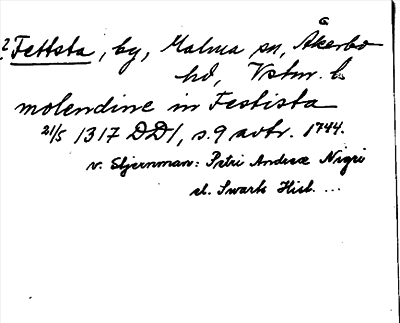 ? Fettsta, by, Malma sn, Åkerbo
hd, Vstm. l.
molendine in Festista
21/5 1317 DD1, s. 9 avtr. 1744.
v. Stjernman: Petri Andreæ Nigri
el. Swarts Hist. ...